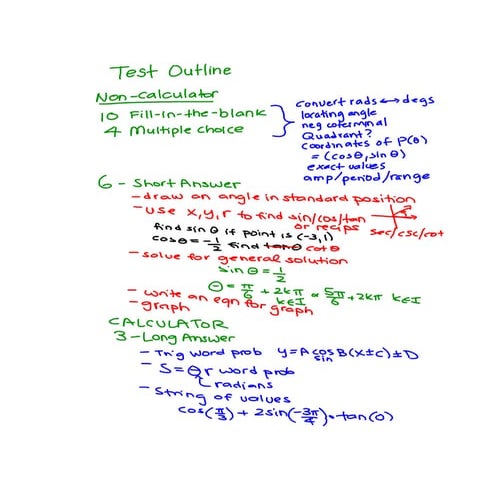 Test Outline
Non-calculator
10 Fill-in-the-blank
4 Multiple choice
convert rads ↔ degs
locating angle
neg coterminal
Quadrant?
coordinates of P(θ)
= (cosθ, sinθ)
exact values
amp/period/range
6 - Short Answer
- draw an angle in standard position
- use x, y, r to find sin/cos/tan
or recips sec/csc/cot
find sin θ if point is (-3,1)
cosθ = -1/2 find tanθ cotθ
- solve for general solution
sin θ = 1/2
θ = π/6 + 2kπ or 5π/6 + 2kπ k∈I
k∈I
- write an eqn for graph
- graph
CALCULATOR
3 - Long Answer
- Trig word prob y = A cos B(x ± c) ± D
sin
- S = θr word prob
radians
- String of values
cos(π/3) + 2sin(-3π/4) • tan(0)